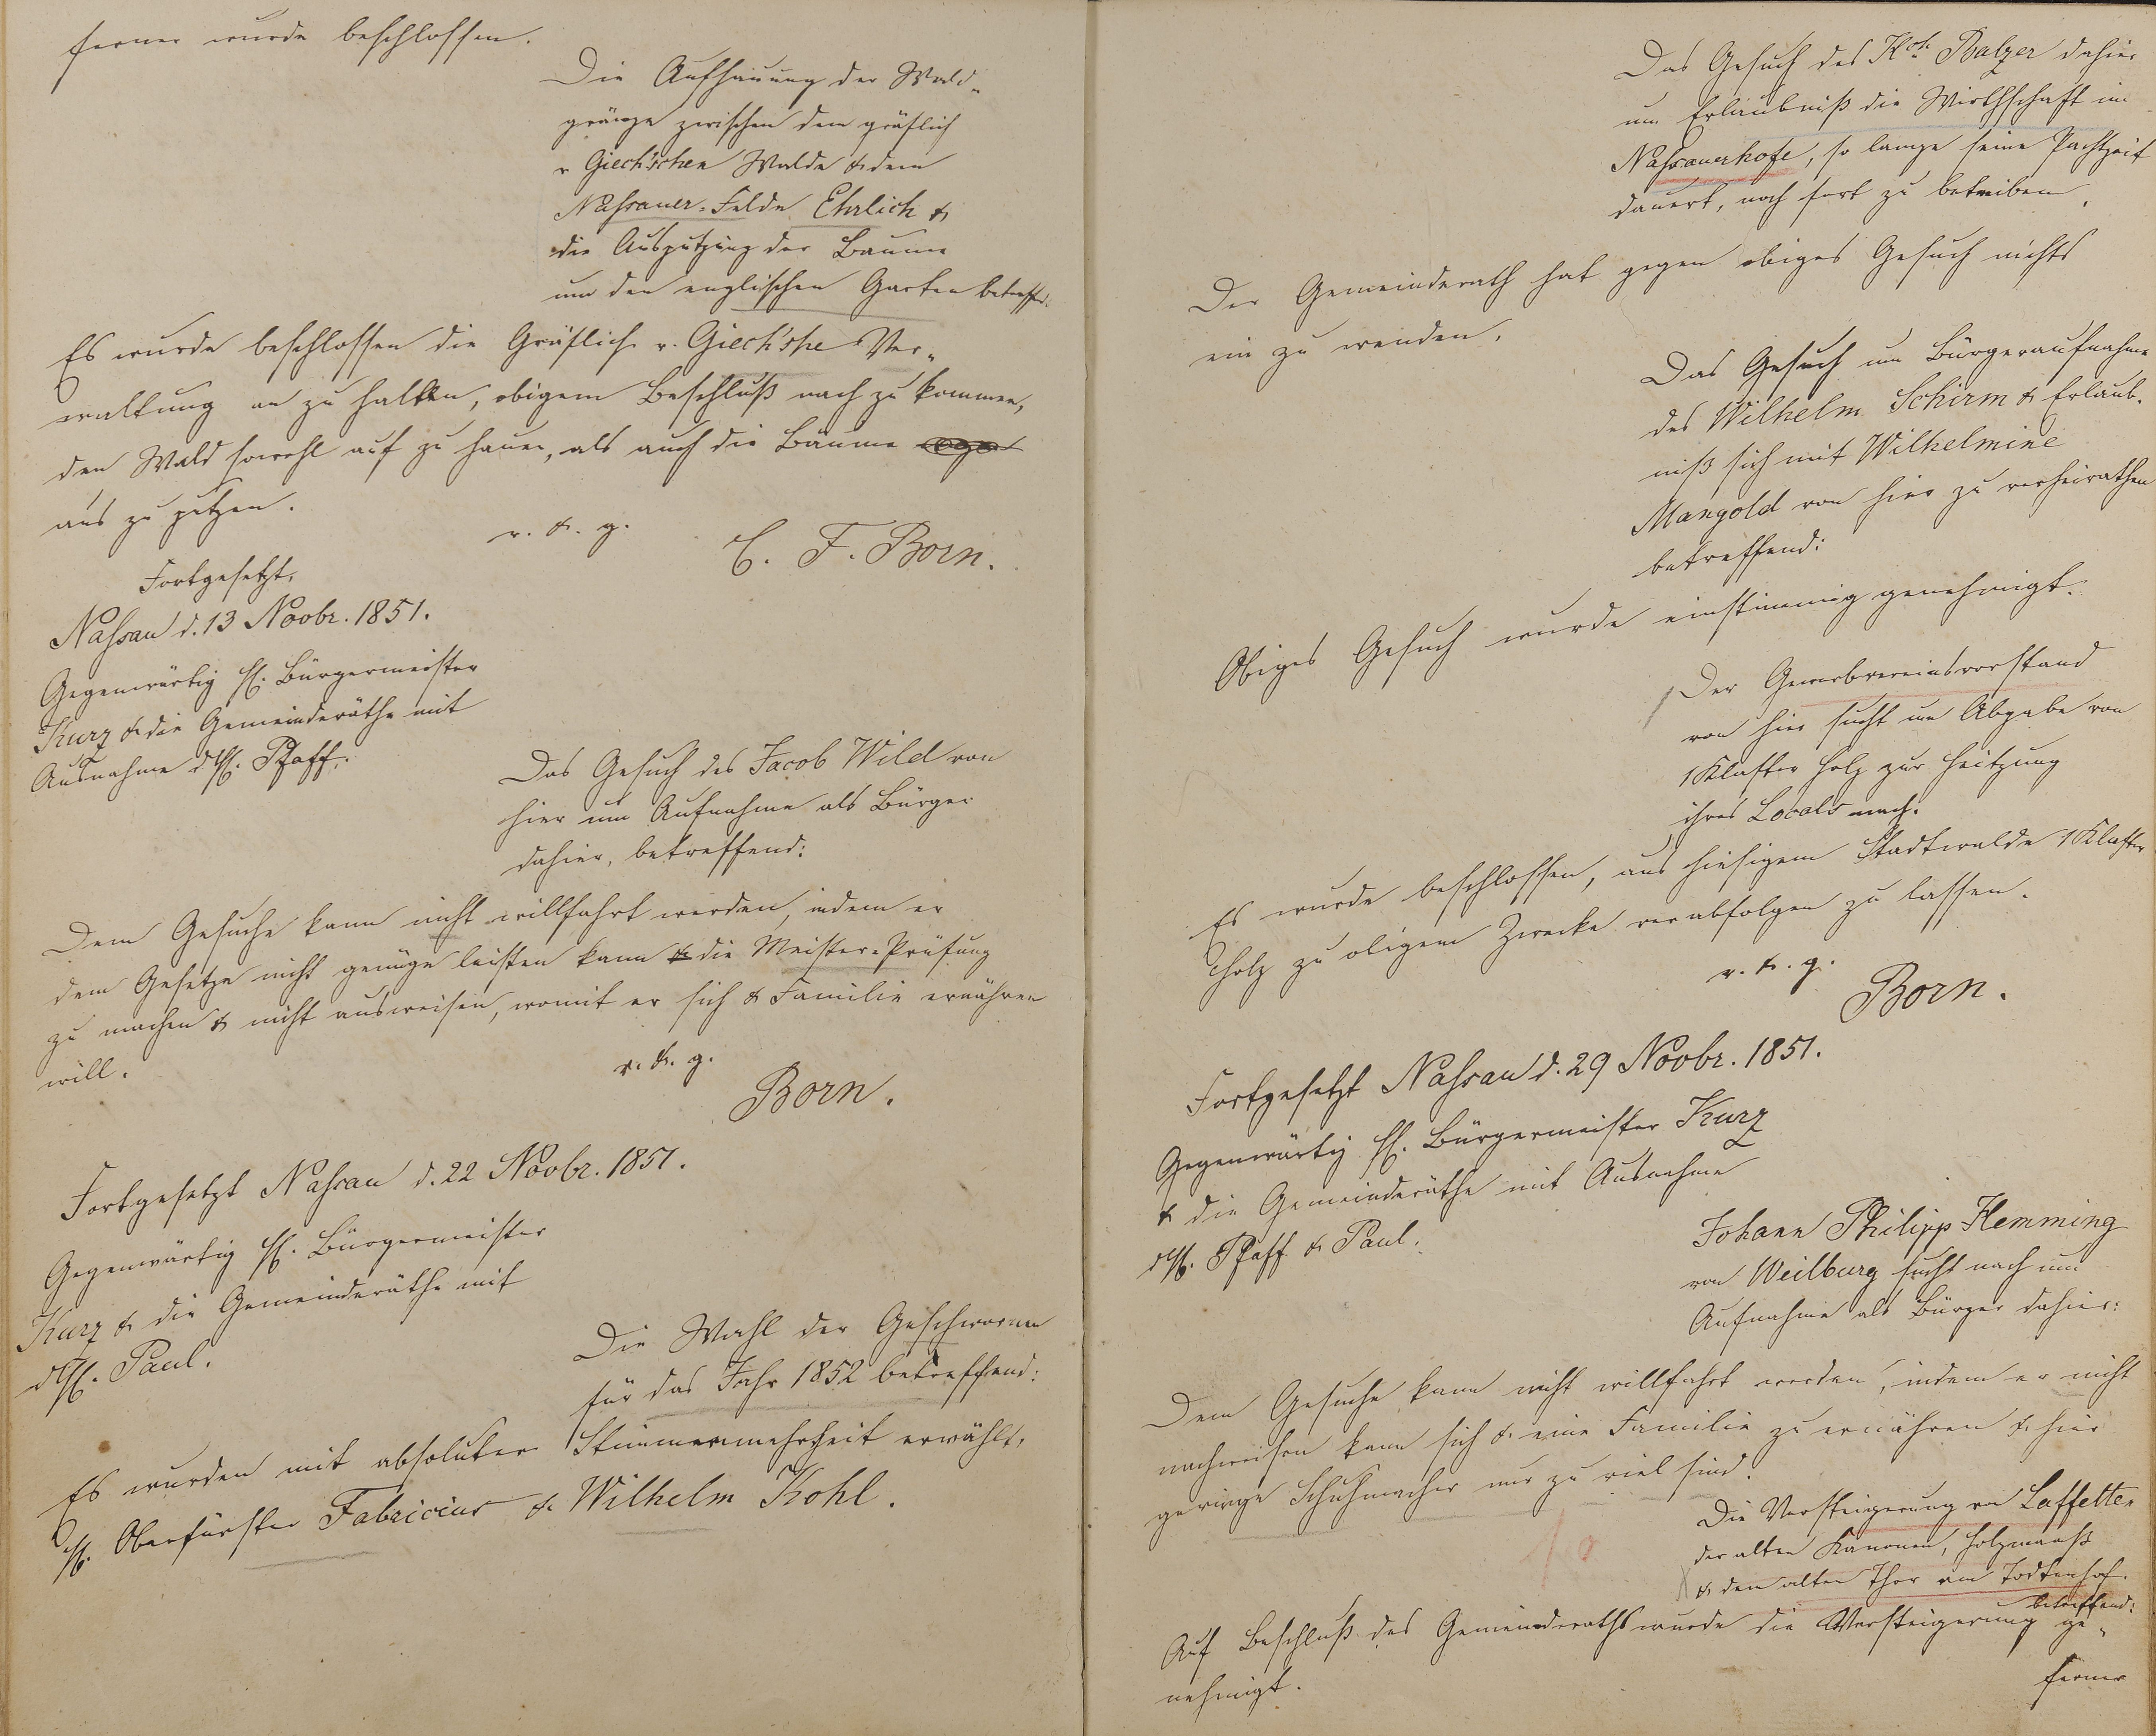 ferner wurde beschlossen.
Die Aufhauung der Wald-
gränze zwischen dem gräflich
v Giech'schen Walde & dem
Nassauer-Felde Ehrlich &
die Ausputzung der Bäume
um den englischen Garten betreffd.
Es wurde beschlossen die Gräflich v. Giech'sche Ver-
waltung an zu halten, obigem Beschluß nach zu kommen,
den Wald sowohl auf zu hauen, als auch die Bäume
aus zu putzen.
v. & g.
C. F. Born.
Fortgesetzt,
Nassau d. 13 Novbr. 1851.
Gegenwärtig H. Bürgermeister
Kurz & die Gemeinderäthe mit
Ausnahme d H. Pfaff.
Das Gesuch des Jacob Wild von
hier um Aufnahme als Bürger
dahier, betreffend:
Dem Gesuche kann nicht willfahrt werden, indem er
dem Gesetze nicht genüge leisten kann & die Meister-Prüfung
zu machen & nicht ausweisen, womit er sich & Familie ernähren
will.
v. & g.
Born.
Fortgesetzt Nassau d. 22 Novbr. 1851.
Gegenwärtig H. Bürgermeister
Kurz & die Gemeinderäthe mit
d H. Paul.
Die Wahl der Geschwornen
für das Jahr 1852 betreffend:
Es wurden mit absoluter Stimmenmehrheit erwählt,
H. Oberförster Fabricius & Wilhelm Kohl.
Das Gesuch des Balzer dahier
um Erlaubniß die Wirthschaft im
Nassauerhofe, so lange seine Pachtzeit
dauert, noch fort zu betreiben.
Der Gemeinderath hat gegen obiges Gesuch nichts
ein zu wenden.
Das Gesuch um Bürgeraufnahme
des Wilhelm Schirm & Erlaub-
niß sich mit Wilhelmine
Mangold von hier zu verheirathen
betreffend:
Obiges Gesuch wurde einstimmig genehmigt.
Der Gewerbvereinsvorstand
von hier sucht um Abgabe von
1 Klafter Holz zur Heitzung
ihres Locals nach.
Es wurde beschlossen, aus hiesigem Stadtwalde 1 Klafter
Holz zu obigem Zwecke verabfolgen zu lassen.
v. & g.
Born.
Fortgesetzt Nassau d. 29 Novbr. 1851.
Gegenwärtig H. Bürgermeister Kurz
& die Gemeinderäthe mit Ausnahme
d H. Pfaff & Paul.
Johann Philipp Hemming
von Weilburg sucht nach um
Aufnahme als Bürger dahier:
Dem Gesuche kann nicht willfahrt werden, indem er nicht
nachweisen kann sich & eine Familie zu ernähren & hier
geringe Schuhmacher nur zu viel sind.
Die Versteigerung von Laffetten
der alten Kanonen, Holzmaaß
& dem alten Thor am Todtenhof.
betreffend:
Auf Beschluß des Gemeinderaths wurde die Versteigerung ge-
nehmigt.
ferner